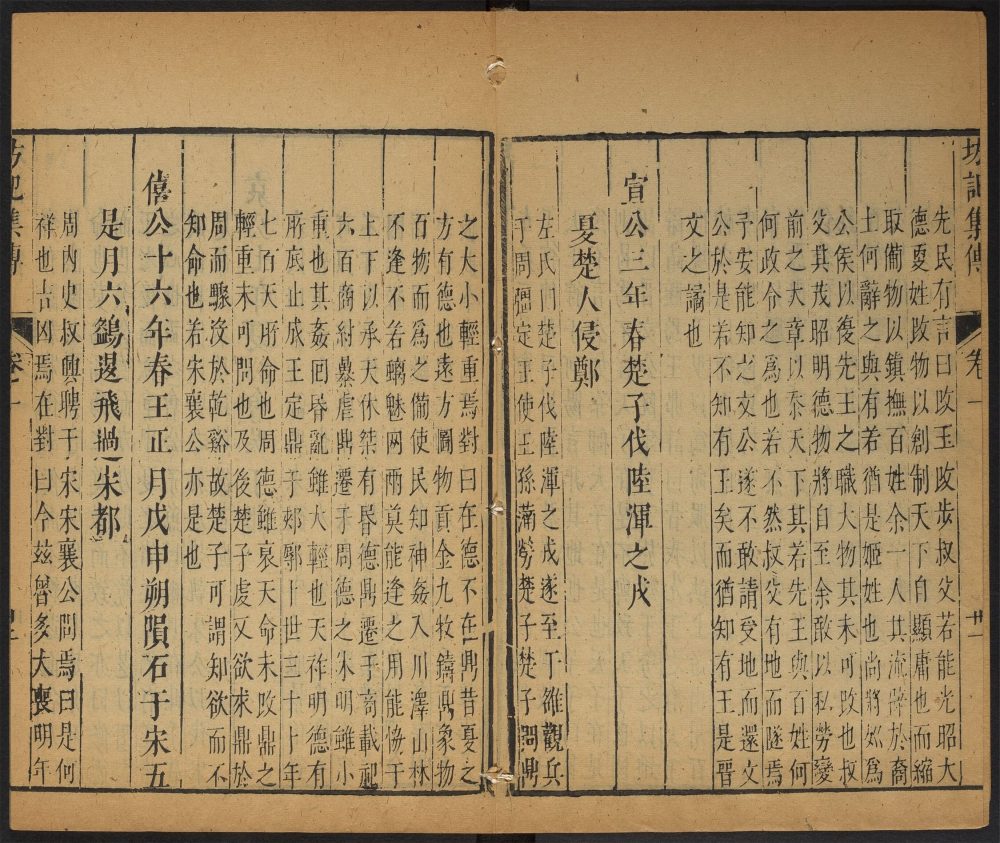 坊記集傳
卷一
廿一
先民有言曰改玉改步叔父若能光昭大
德更姓改物以創制天下自顯庸也而縮
取備物以鎮撫百姓余一人其流辟於裔
土何辭之與有若猶是姬姓也尚將列為
公侯以復先王之職大物其未可改也叔
父其茂昭明德物將自至余敢以私勞變
前之大章以忝天下其若先王與百姓何
何政令之為也若不然叔父有地而隧焉
予安能知之文公遂不敢請受地而還文
公於是若不知有王矣而猶知有王是晋
文之譎也
宣公三年春楚子伐陸渾之戎
夏楚人侵鄭
左氏曰楚子伐陸渾之戎遂至于雒觀兵
于周疆定王使王孫滿勞楚子楚子問鼎
之大小輕重焉對曰在德不在鼎昔夏之
方有德也遠方圖物貢金九牧鑄鼎象物
百物而為之備使民知神姦入川澤山林
不逢不若螭魅罔兩莫能逢之用能協于
上下以承天休桀有昬德鼎遷于商載祀
六百商紂暴虐鼎遷于周德之休明雖小
重也其姦回昏亂雖大輕也天祚明德有
所底止成王定鼎于郟鄏卜世三十卜年
七百天所命也周德雖衰天命未改鼎之
輕重未可問也及後楚子虔又欲求鼎於
周而驟沒於乾谿故楚子可謂知欲而不
知命也若宋襄公亦是也
僖公十六年春王正月戊申朔隕石于宋五
是月六鷁退飛過宋都
周内史叔興聘于宋宋襄公問焉曰是何
祥也吉凶焉在對曰今茲魯多大喪明年
坊記集傳
卷一